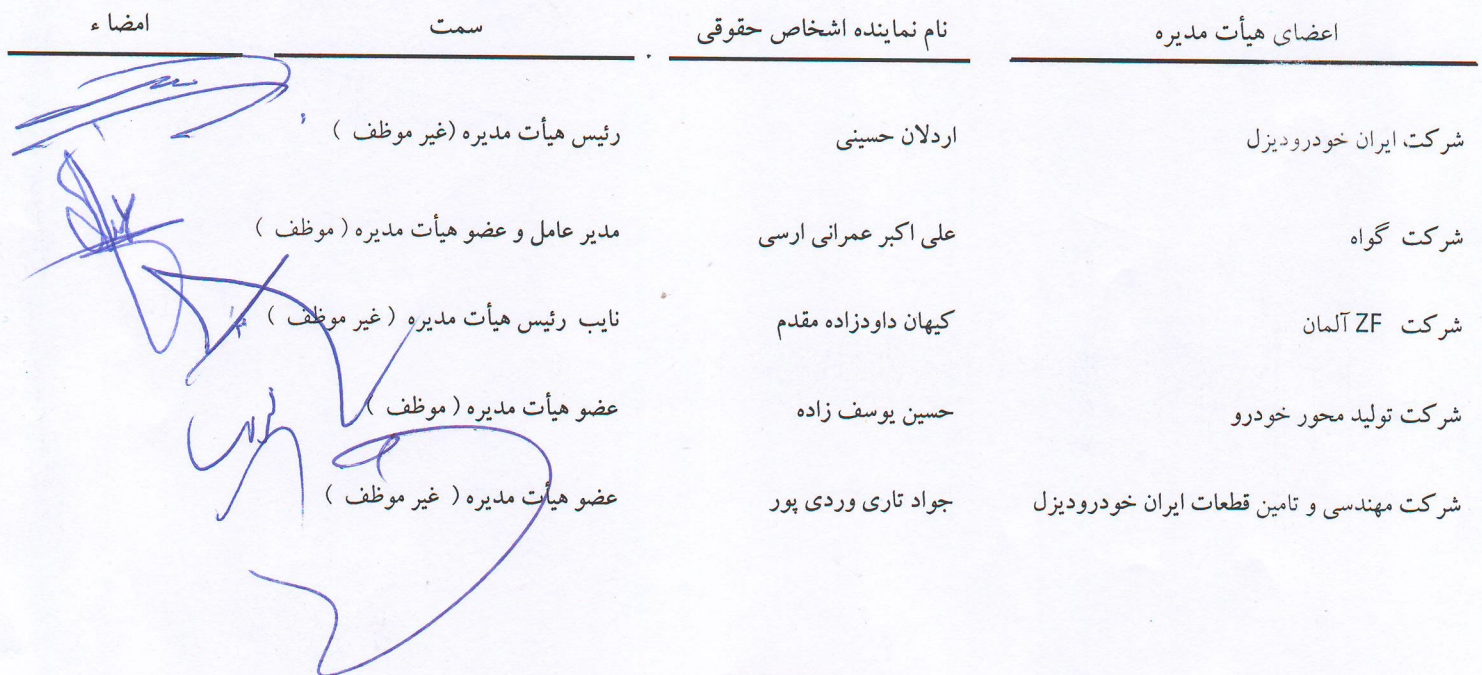 اعضای هیأت مدیره نام نماینده اشخاص حقوقی سمت امضا ء
شرکت ایران خودرودیزل اردلان حسینی رئیس هیأت مدیره (غیر موظف )
شرکت گواه علی اکبر عمرانی ارسی مدیر عامل و عضو هیأت مدیره ( موظف )
شرکت ZF آلمان کیهان داودزاده مقدم نایب رئیس هیأت مدیره ( غیر موظف )
شرکت تولید محور خودرو حسین یوسف زاده عضو هیأت مدیره ( موظف )
شرکت مهندسی و تامین قطعات ایران خودرودیزل جواد تاری وردی پور عضو هیأت مدیره ( غیر موظف )